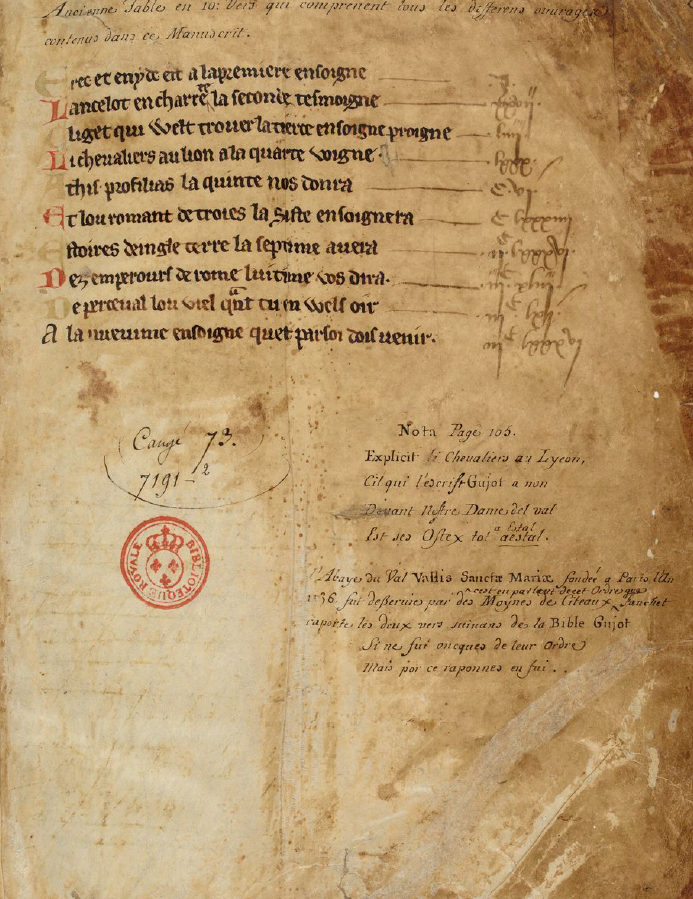 Ancienne Table en 10: Vers qui comprenent tous les differens ouvrages
contenus dans ce Manuscrit.
Erec et enyde eit a la premiere ensoigne
Lancelot en charrete la seconde tesmoigne
Cliget qui welt trouer la tierce ensoigne proigne
Li chevaliers au lion a la quarte voigne
Athis profilias la quinte nos donra
Et lou romant de troies la siste ensoignera
Estoires dengle terre la septime auera
Dez emperours de rome luitime vos dira.
De perceual lou viel quant tu en wels oir
A la nuevime ensoigne quet par soi dois venir.
Cangé 73.
7191-2
BIBLIOTEQUE ROYALE
Nota Page 105.
Explicit li Chevaliers au Lyeon,
Cil qui l'escrist Gujot a non
Devant Nostre Dame del val
Est ses Ostex tot aestal.
a Estal
l'Abaye du Val Vallis Sanctæ Mariæ fondée a Paris l'An
c'est en parlant de cet Ordre que
1136 fut desservie par des Moynes de Citeaux Fauchet
raporte les deux vers suivans de la Bible Gujot
Si ne fui oncques de leur Ordre
Mais por ce raponnes en fui..